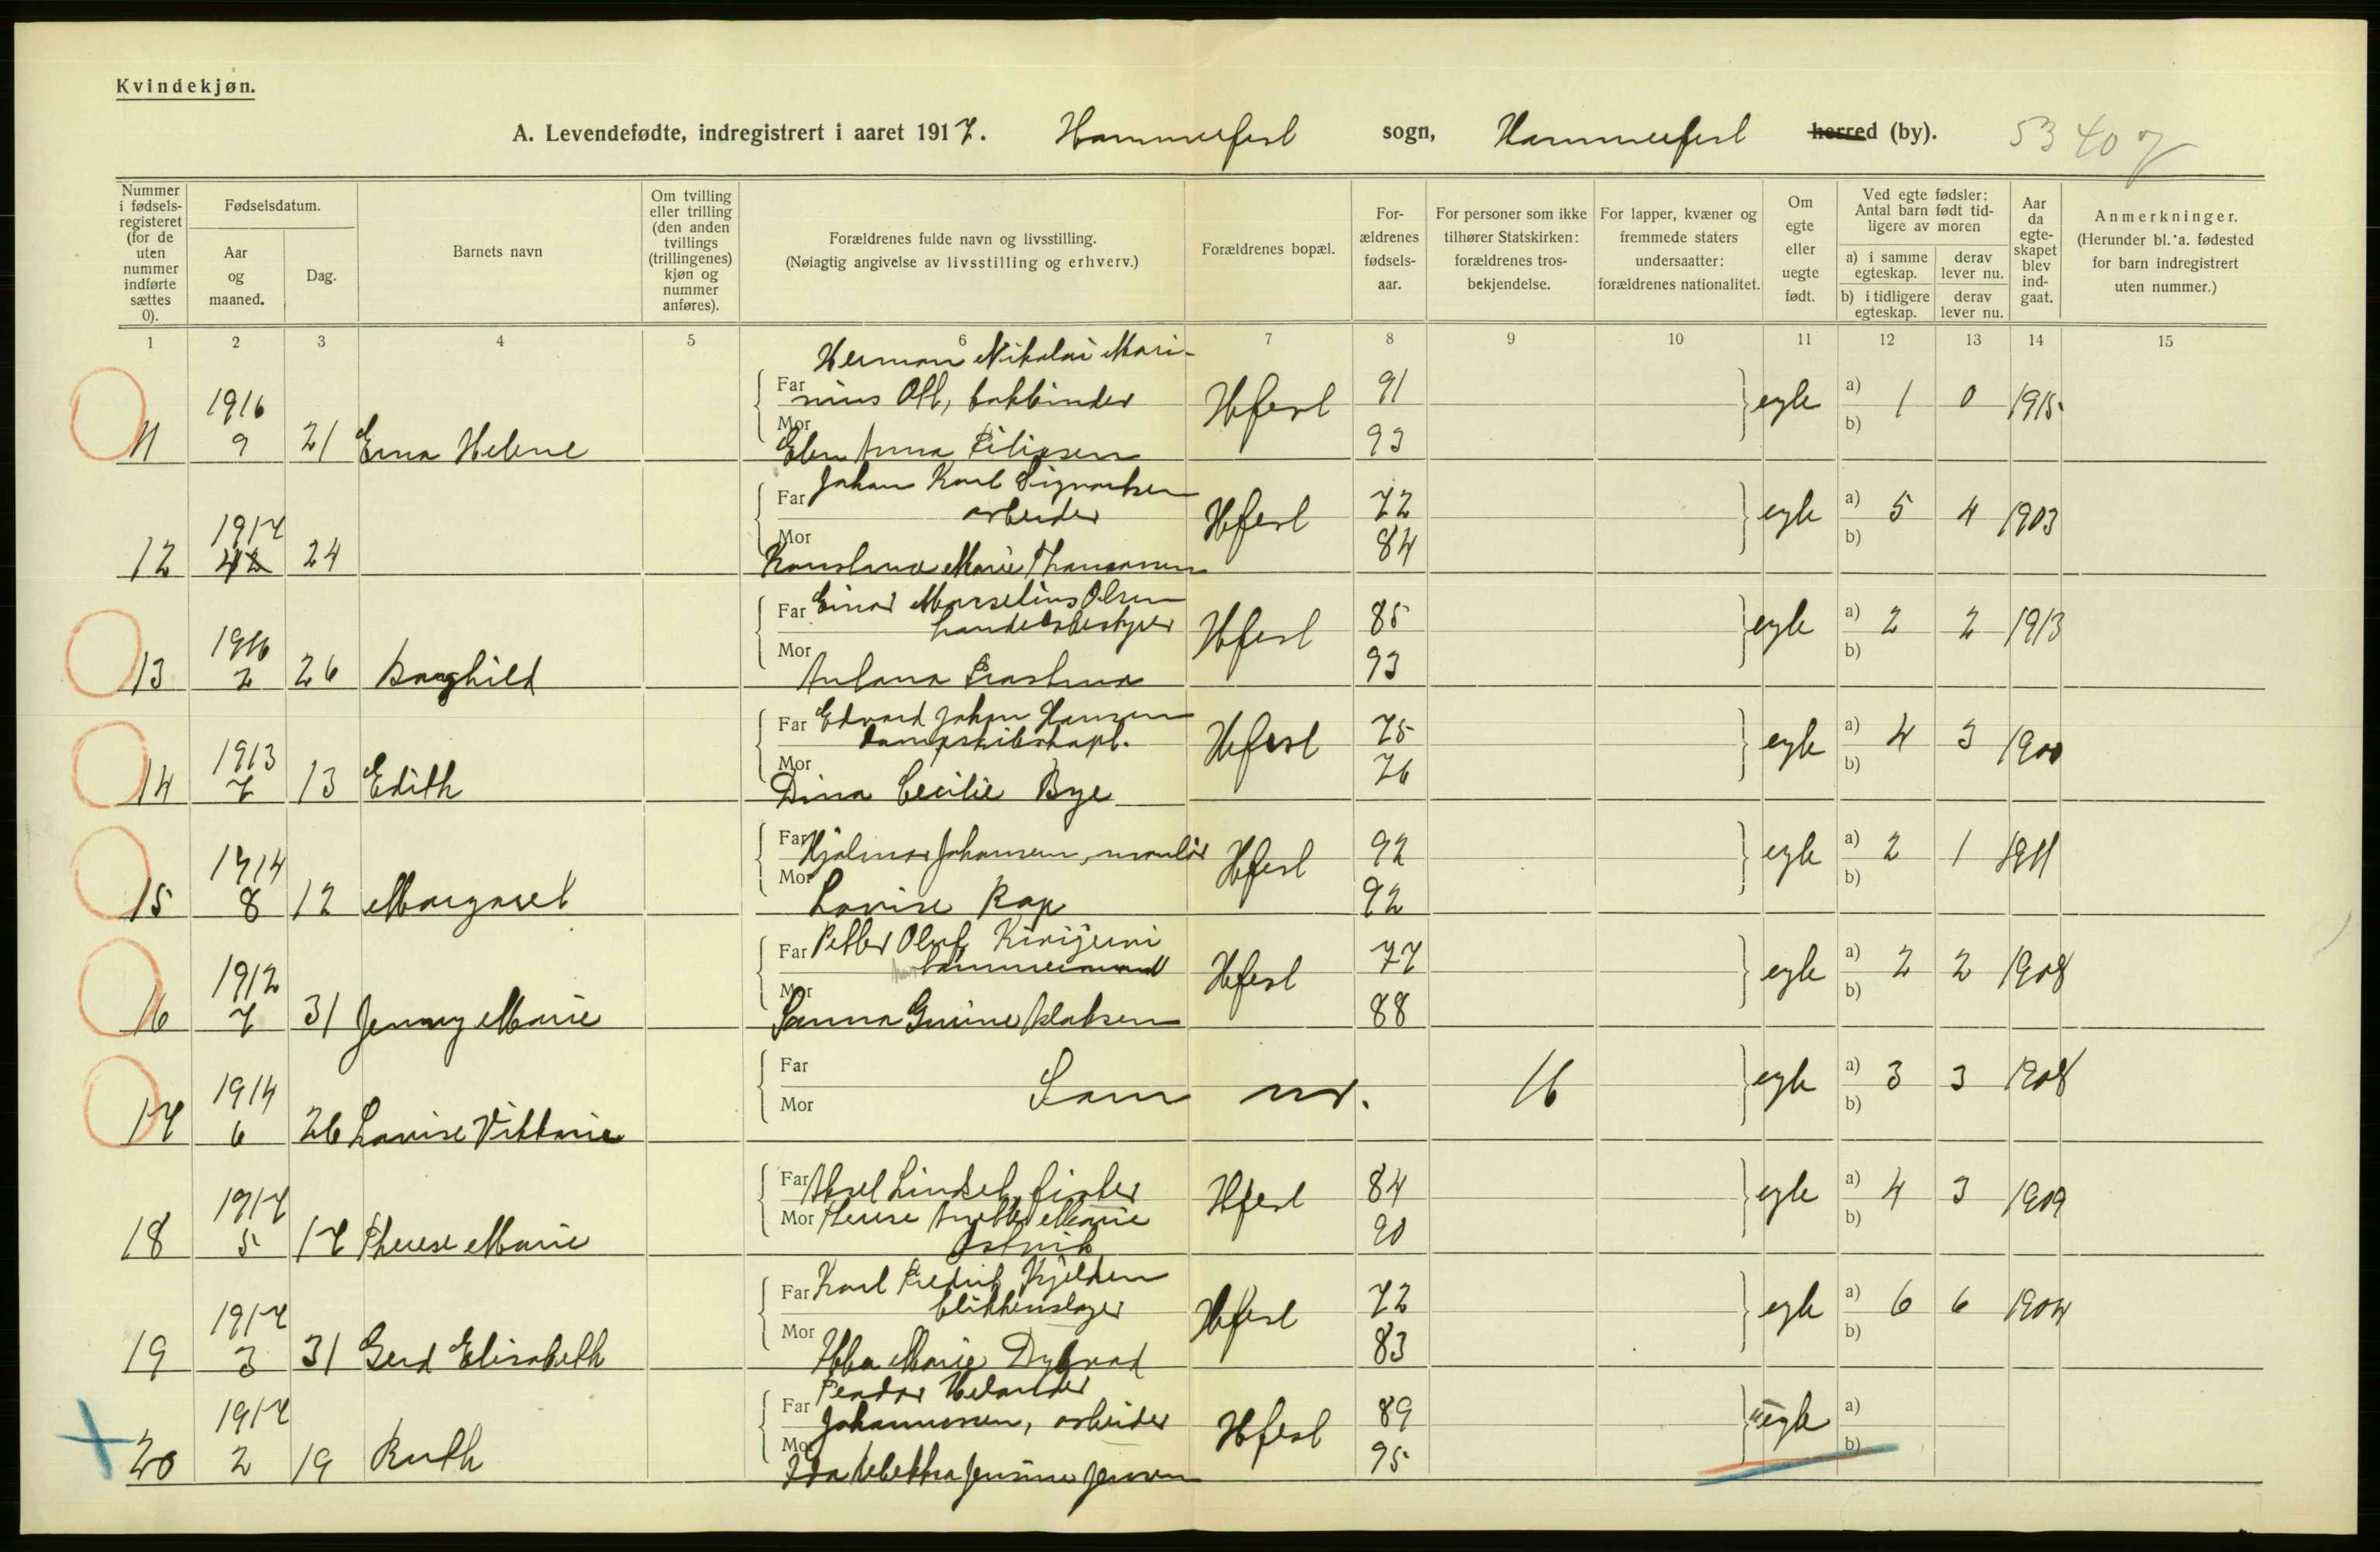 Kvindekjøn.
A. Levendefødte, indregistrert i aaret 1917. Hammerfest sogn, Hammerfest herred (by). 53 407
Nummer i fødselsregisteret (for de uten nummer indførte sættes 0).
Fødselsdatum.
Aar og maaned.
Dag.
Barnets navn
Om tvilling eller trilling (den anden tvillings (trillingenes) kjøn og nummer anføres).
Forældrenes fulde navn og livsstilling.
(Nøiagtig angivelse av livsstilling og erhverv.)
Forældrenes bopæl.
Forældrenes fødselsaar.
For personer som ikke tilhører Statskirken: forældrenes trosbekjendelse.
For lapper, kvæner og fremmede staters undersaatter: forældrenes nationalitet.
Om egte eller uegte født.
Ved egte fødsler: Antal barn født tidligere av moren
a) i samme egteskap.
derav lever nu.
b) i tidligere egteskap.
derav lever nu.
Aar da egteskapet blev indgaat.
Anmerkninger.
(Herunder bl. a. fødested for barn indregistrert uten nummer.)
1 2 3 4 5 6 7 8 9 10 11 12 13 14 15
Herman Nikolai Mari-
11 1916 9 21 Erna Helene Far nius Ott, bokbinder Hfest 91 egte a) 1 0 1915
Mor Elen Anna Filipsen 93 b)
12 1917 24 Far Johan Karl Sigvartsen arbeider Hfest 72 egte a) 5 4 1903
Mor Konstanse Marie Thomassen 84 b)
13 1916 2 26 Borghild Far Einar Marselius Olsen handelsbestyrer Hfest 85 egte a) 2 2 1913
Mor Antona 93 b)
14 1913 7 13 Edith Far Edvard Johan Hansen dampskibskapt. Hfest 75 egte a) 4 3 1900
Mor Dina Cecilie Bye 76 b)
15 1914 8 12 Margaret Far Hjalmar Johansen, montør Hfest 92 egte a) 2 1 1911
Mor Lovise Rap 92 b)
16 1912 7 31 Jenny Marie Far Petter Olaf Kivijervi tømmermand Hfest 77 egte a) 2 2 1908
Mor Sanna Gurine Klaksen 88 b)
17 1914 6 26 Lovise Viktoria Far Mor Som nr. 16 egte a) 3 3 1908
b)
18 1917 5 17 Therese Marie Far Aksel Lindset, fisker Hfest 84 egte a) 4 3 1909
Mor Therese Anette Marie Østvik 90 b)
19 1917 3 31 Gerd Elisabeth Far Karl Fredrik Kjeldsen blikkenslager Hfest 72 egte a) 6 6 1904
Mor Ebba Marie Dybvad 83 b)
20 1917 2 19 Ruth Far Peadar Helander Johannessen, arbeider Hfest 89 uegte a)
Mor Ida Rebekka Jensine Jensen 95 b)